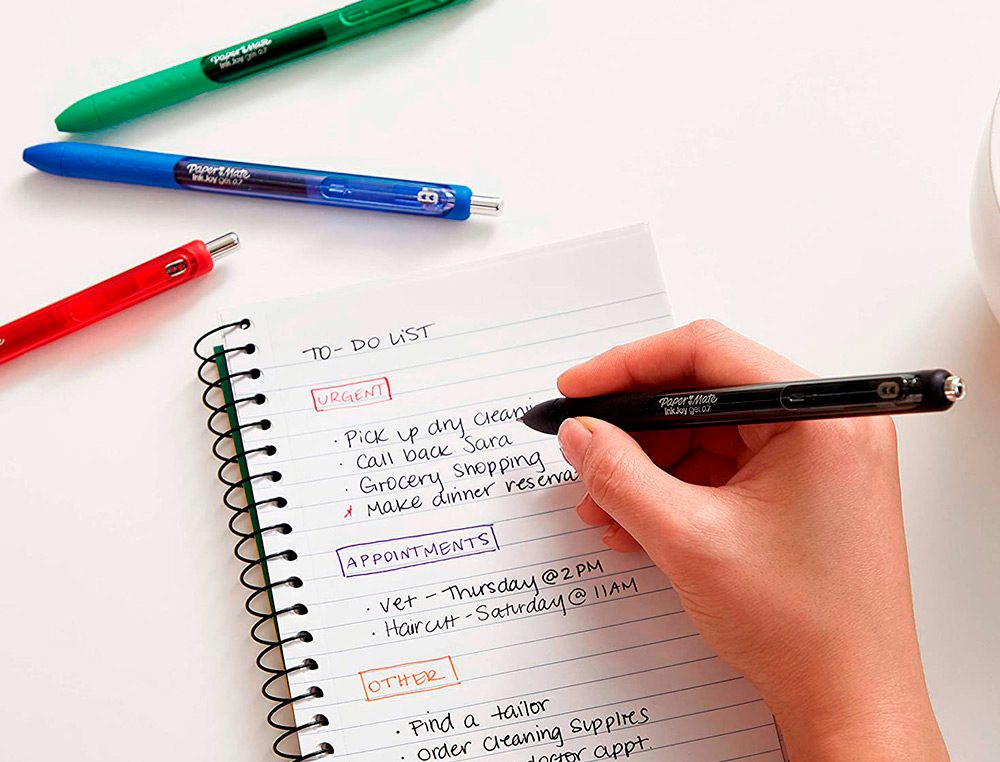 Paper Mate
InkJoy gel 0.7
Paper Mate
InkJoy gel 0.7
TO-DO LIST
URGENT
· Pick up dry
· Call back Sara
· Grocery Shopping
* Make dinner
Paper Mate
InkJoy gel 0.7
APPOINTMENTS
· Vet - Thursday @ 2 PM
· Haircut - Saturday @ 11 AM
OTHER
· Find a tailor
· Order Cleaning Supplies
doctor appt.